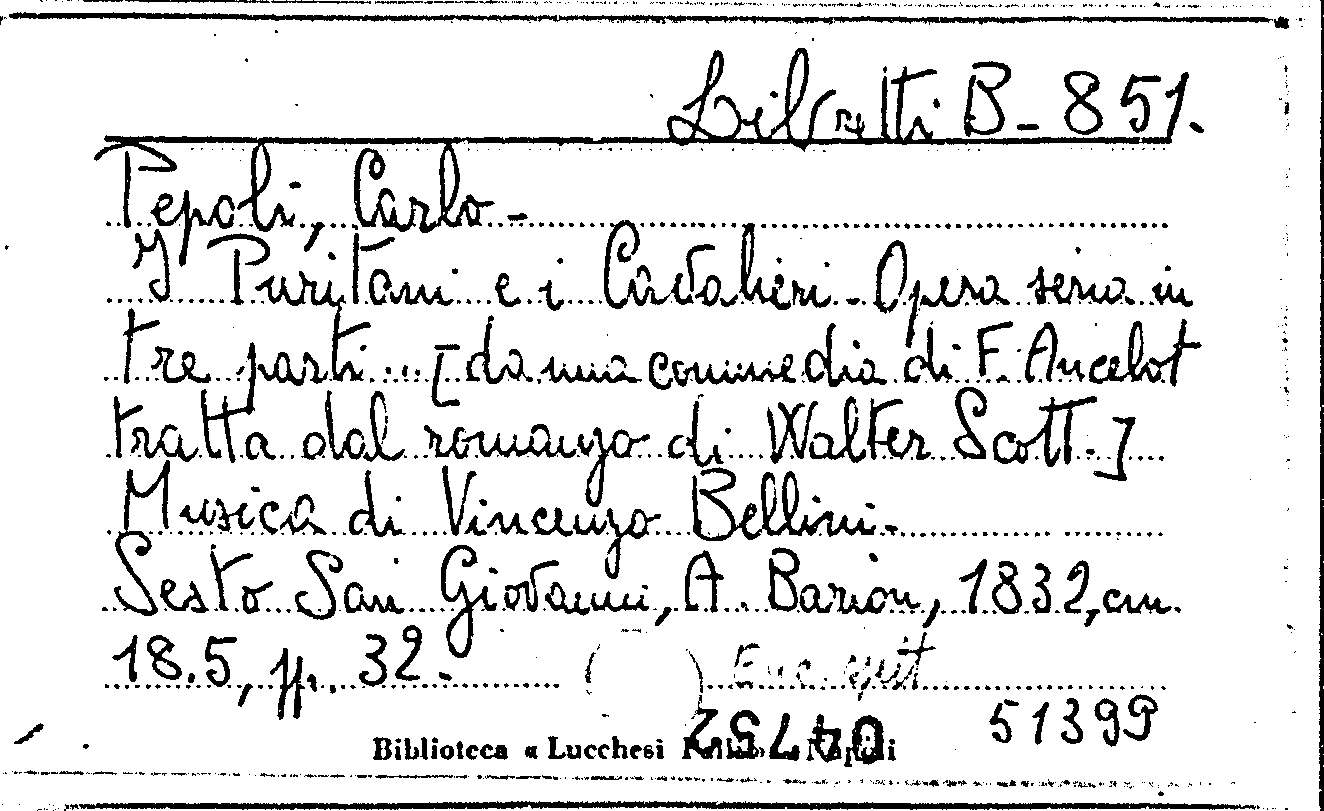 Libretti B-851.
Pepoli, Carlo-
I Puritani e i Cavalieri. Opera seria in
tre parti... [da una commedia di F. Ancelot
tratta dal romanzo di Walter Scott.]
Musica di Vincenzo Bellini.
Sesto San Giovanni, A. Barion, 1832, cm.
18.5, pp. 32.
51399
Biblioteca « Lucchesi Palli» Napoli